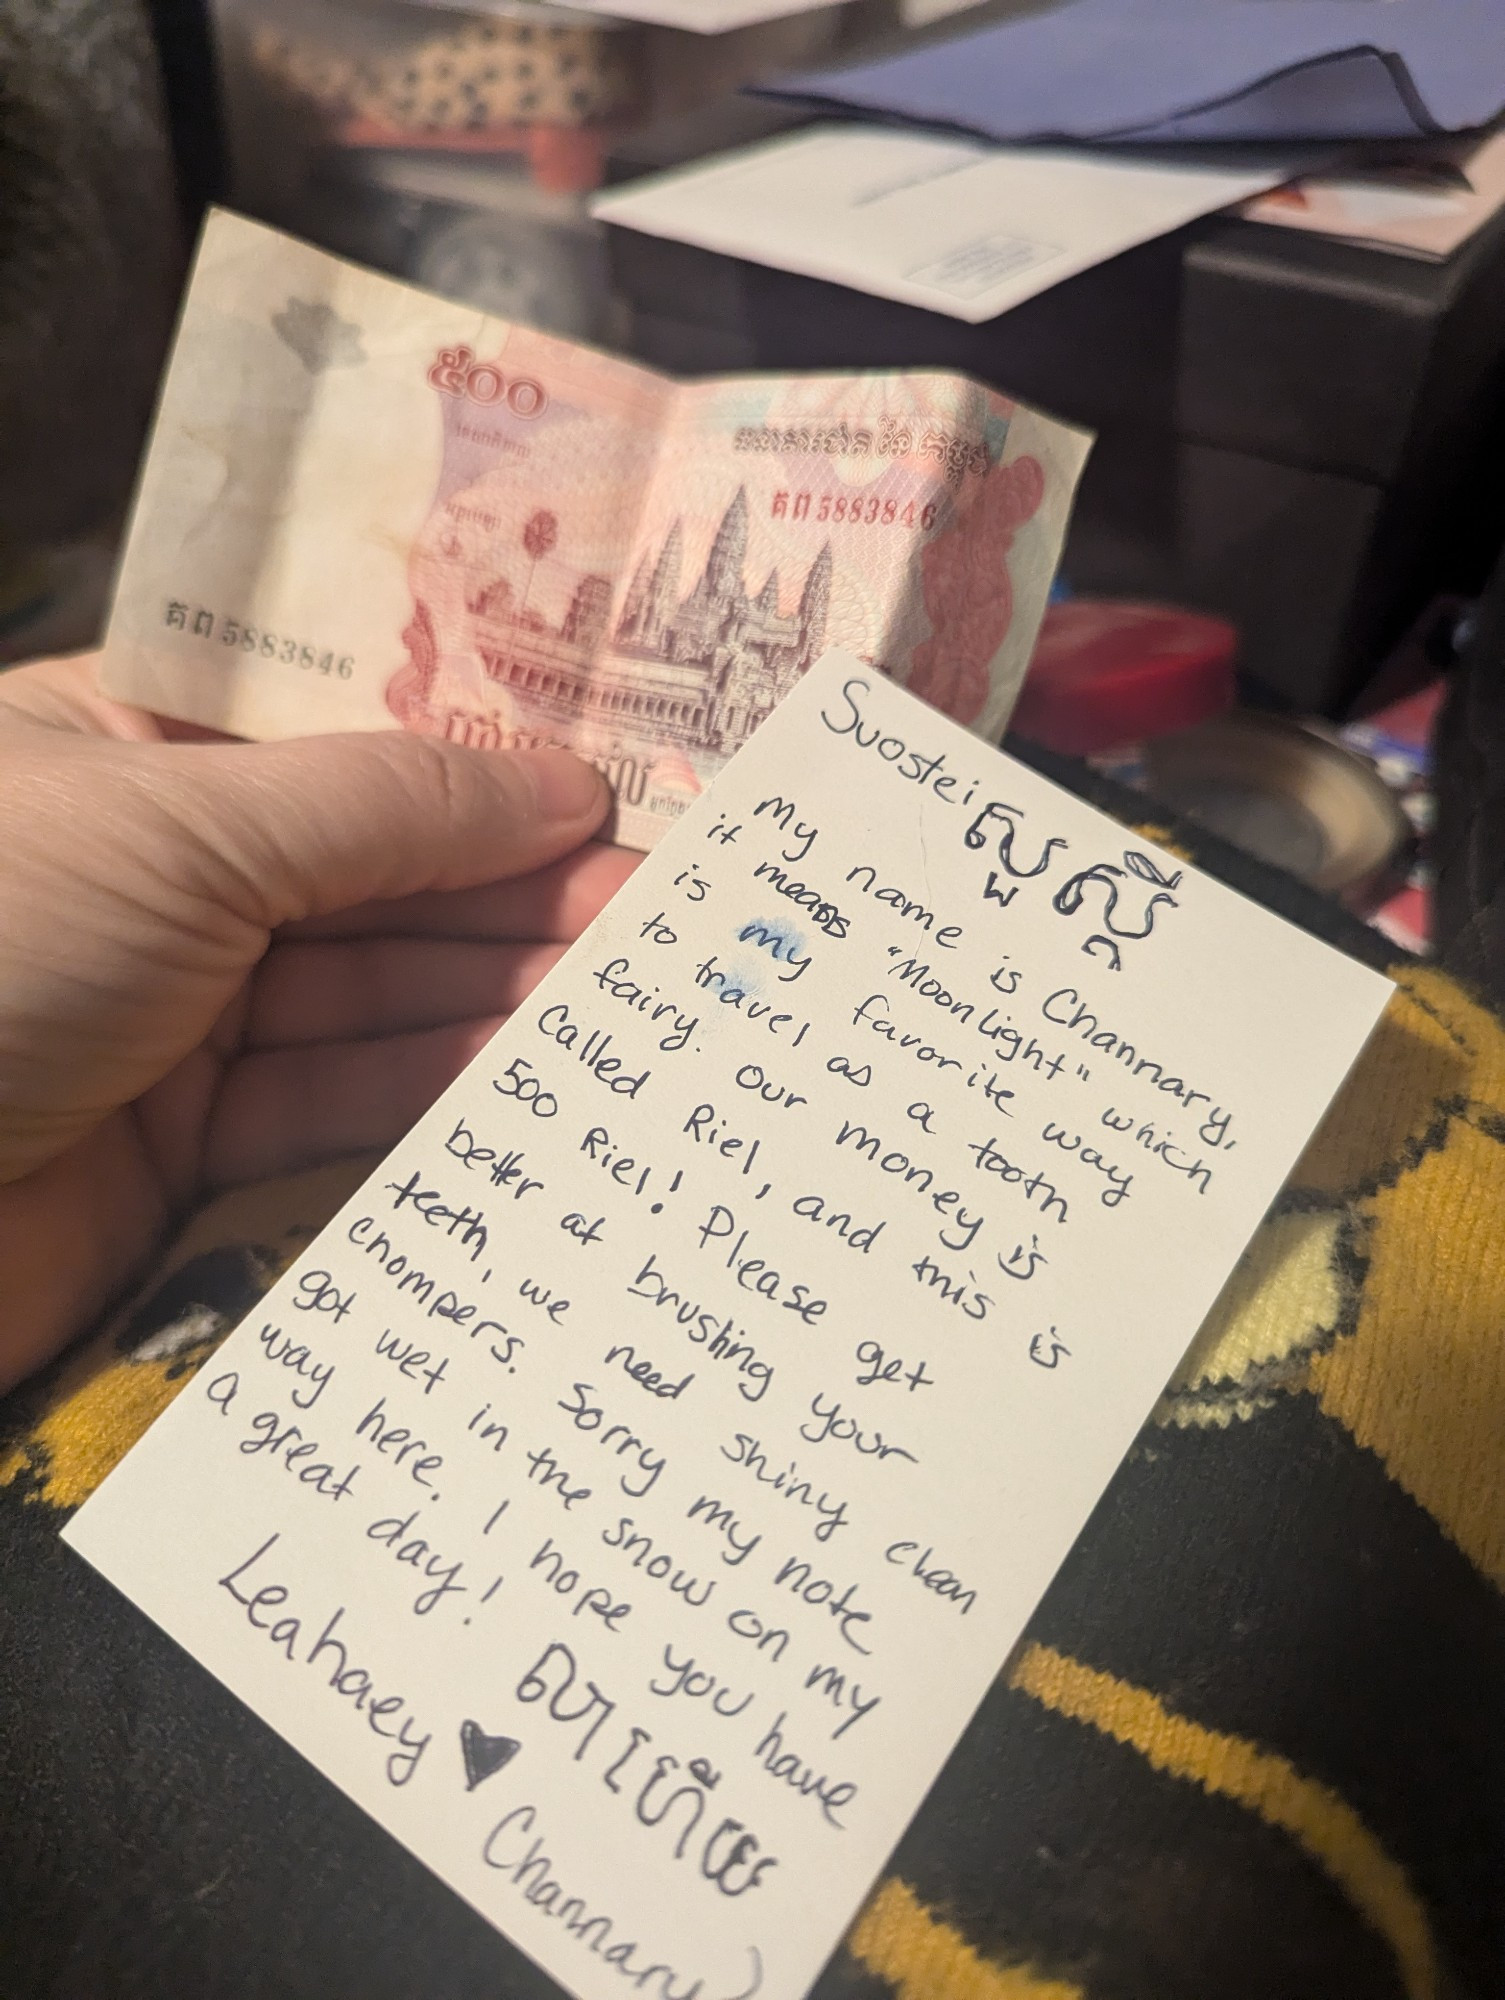 ៥០០
ធនាគារជាតិនៃកម្ពុជា
គព 5883846
គព 5883846
Suostei សួស្តី
My name is Channary,
it means "Moonlight" which
is my favorite way
to travel as a tooth
fairy. Our money is
called Riel, and this is
500 Riel! Please get
better at brushing your
teeth, we need shiny clean
chompers. Sorry my note
got wet in the snow on my
way here. I hope you have
a great day!
Leahaey លាហើយ
♥ Channary